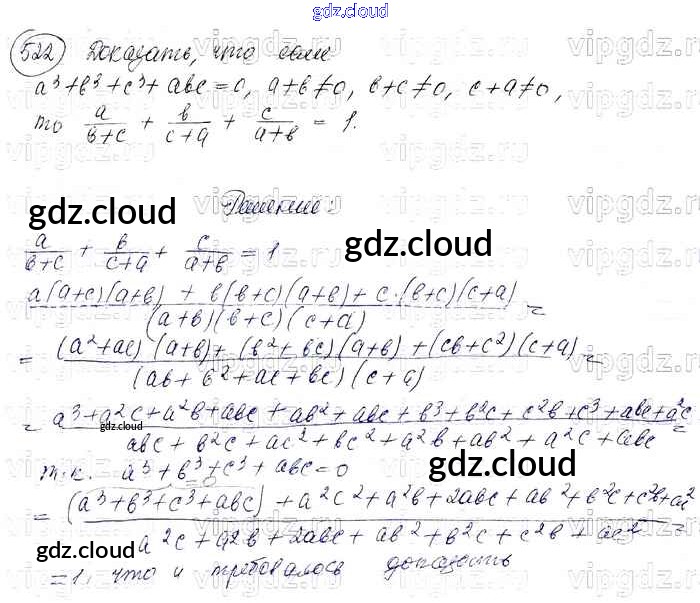 gdz.cloud
522 Доказать, что если
a³+b³+c³+abc=0, a+b≠0, b+c≠0, c+a≠0,
то a/(b+c) + b/(c+a) + c/(a+b) = 1.
Решение:
gdz.cloud
gdz.cloud
a/(b+c) + b/(c+a) + c/(a+b) = 1
(a(a+c)(a+b) + b(b+c)(a+b) + c·(b+c)(c+a))/((a+b)(b+c)(c+a)) =
= ((a²+ac)(a+b) + (b²+bc)(a+b) + (cb+c²)(c+a))/((ab+b²+ac+bc)(c+a)) =
= (a³+a²c+a²b+abc+ab²+abc+b³+b²c+c²b+c³+abc+a²c)/(abc+b²c+ac²+bc²+a²b+ab²+a²c+abc) =
gdz.cloud
т.к. a³+b³+c³+abc=0
gdz.cloud
= ((a³+b³+c³+abc)+a²c²+a²b+2abc+ab²+b²c+c²b+ac²)/(a²c+a²b+2abc+ab²+b²c+c²b+ac²) =
=0
gdz.cloud
=1, что и требовалось доказать